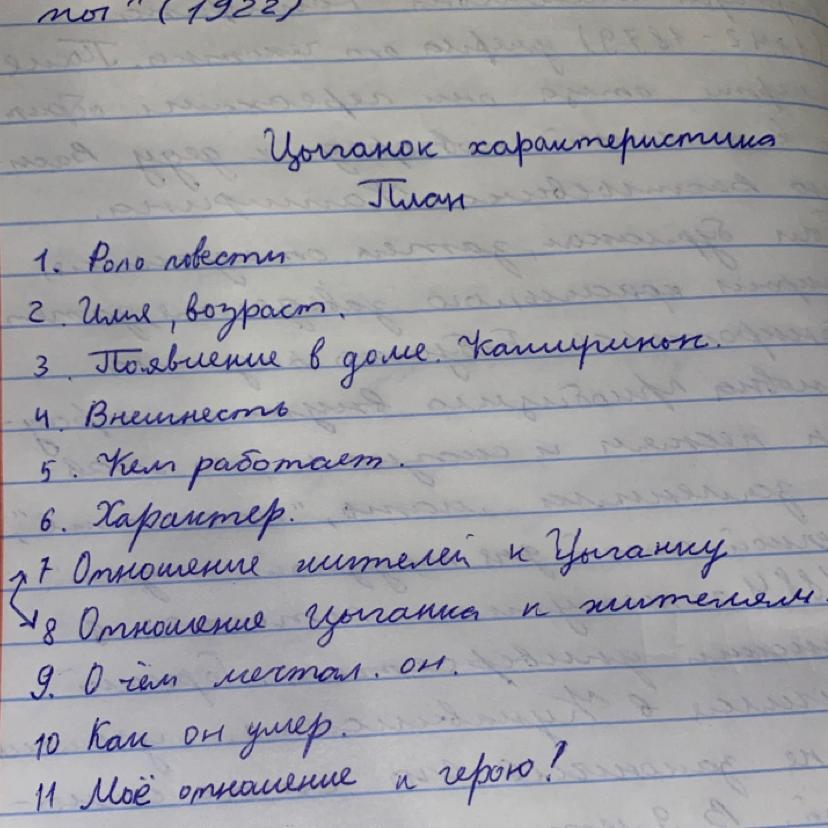 пы" (1922)
Цыганок характеристика
План
1. Роло повести
2. Имя, возраст.
3. Появление в доме. Кашириных.
4. Внешнесть
5. Кем работает.
6. Характер.
7 Отношение жителей к Цыганку
8 Отношение Цыганка к жителям.
9. О чём мечтал. он.
10 Как он умер.
11 Моё отношение к герою!